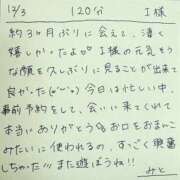 12/3 120分 I様
約3ヶ月ぶりに会えて、凄く
嬉しかったよ♡ I様の元気そう
な顔を久しぶりに見ることが出来て
良かった(*´ω`*) 今日は忙しい中、
事前予約をして、会いに来てくれて
本当にありがとう お口をおまんこ
みたいに使われるの、すっごく興奮
しちゃった!!! また遊ぼうね!!
みと